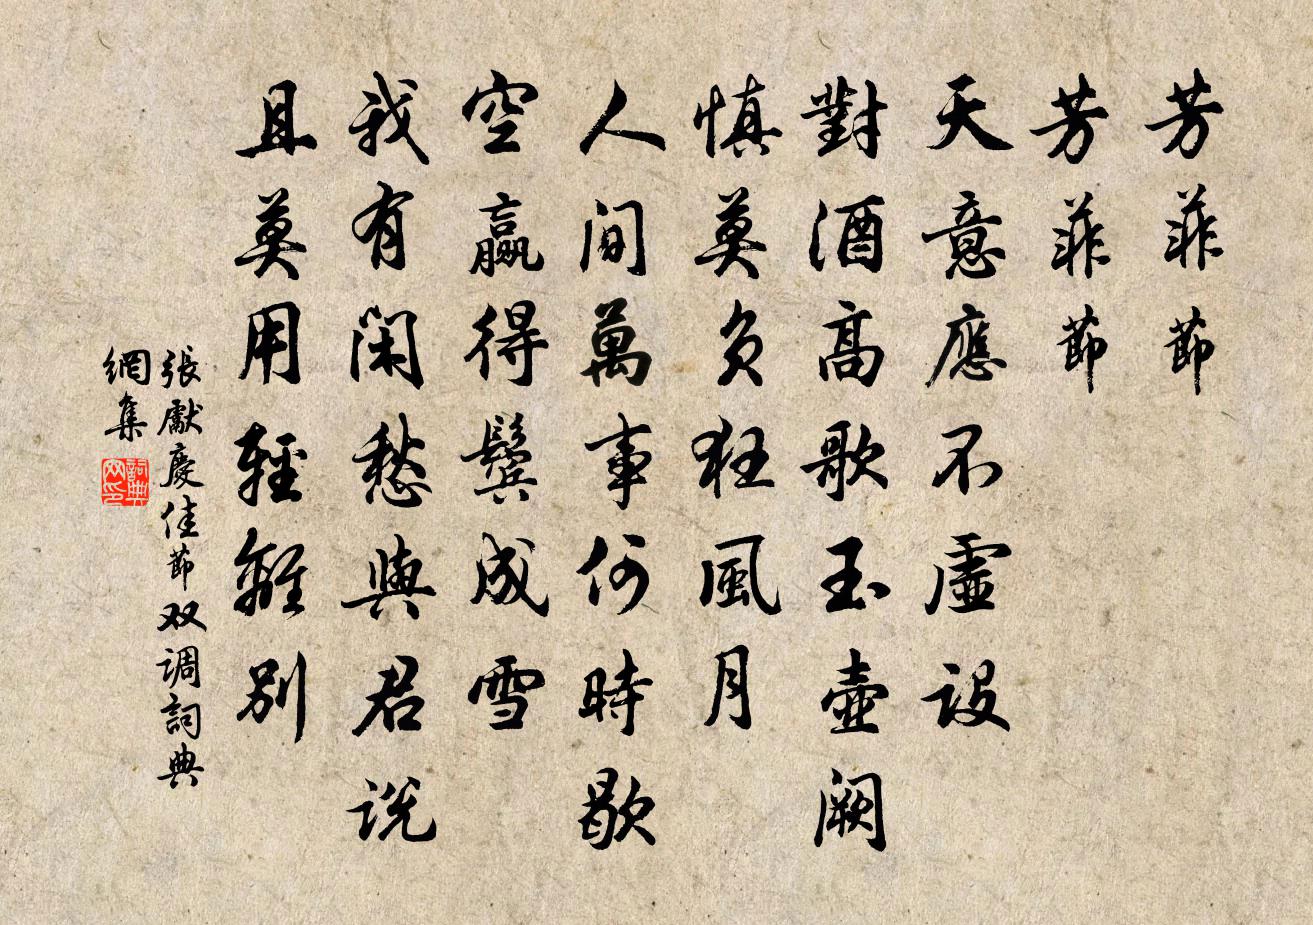 芳菲節
芳菲節
天意應不虛設
對酒高歌玉壺闕
慎莫負狂風月
人間萬事何時歇
空贏得鬢成雪
我有閑愁與君說
且莫用輕離別
張獻慶佳節双调詞典
網集
詞典
网印